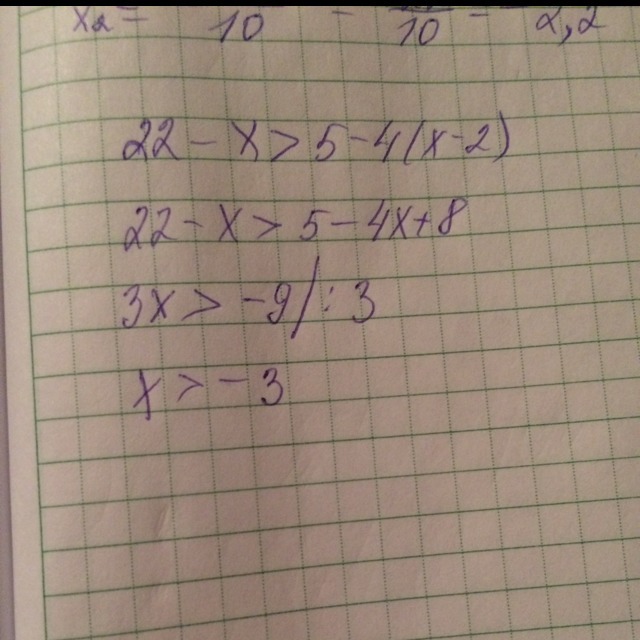 x₂ = 10 = 10 = 2,2
22 - x > 5 - 4(x-2)
22 - x > 5 - 4x + 8
3x > -9 / : 3
x > -3